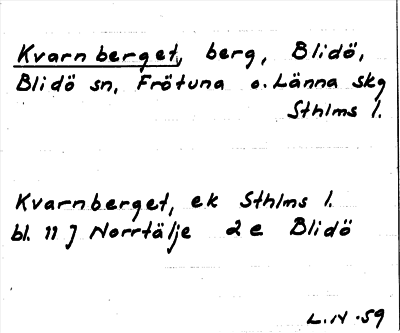 Kvarnberget, berg, Blidö,
Blidö sn, Frötuna o. Länna skg
Sthlms l.
Kvarnberget, ek Sthlms l.
bl. 11 J Norrtälje 2 e Blidö
L.N.59